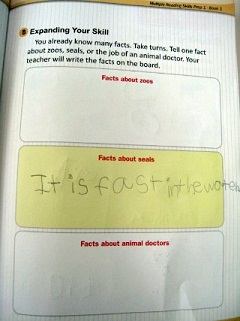 Multiple Reading Skills Prep 2 - Book 1
B Expanding Your Skill
You already know many facts. Take turns. Tell one fact
about zoos, seals, or the job of an animal doctor. Your
teacher will write the facts on the board.
Facts about zoos
Facts about seals
It is fast in the water
Facts about animal doctors